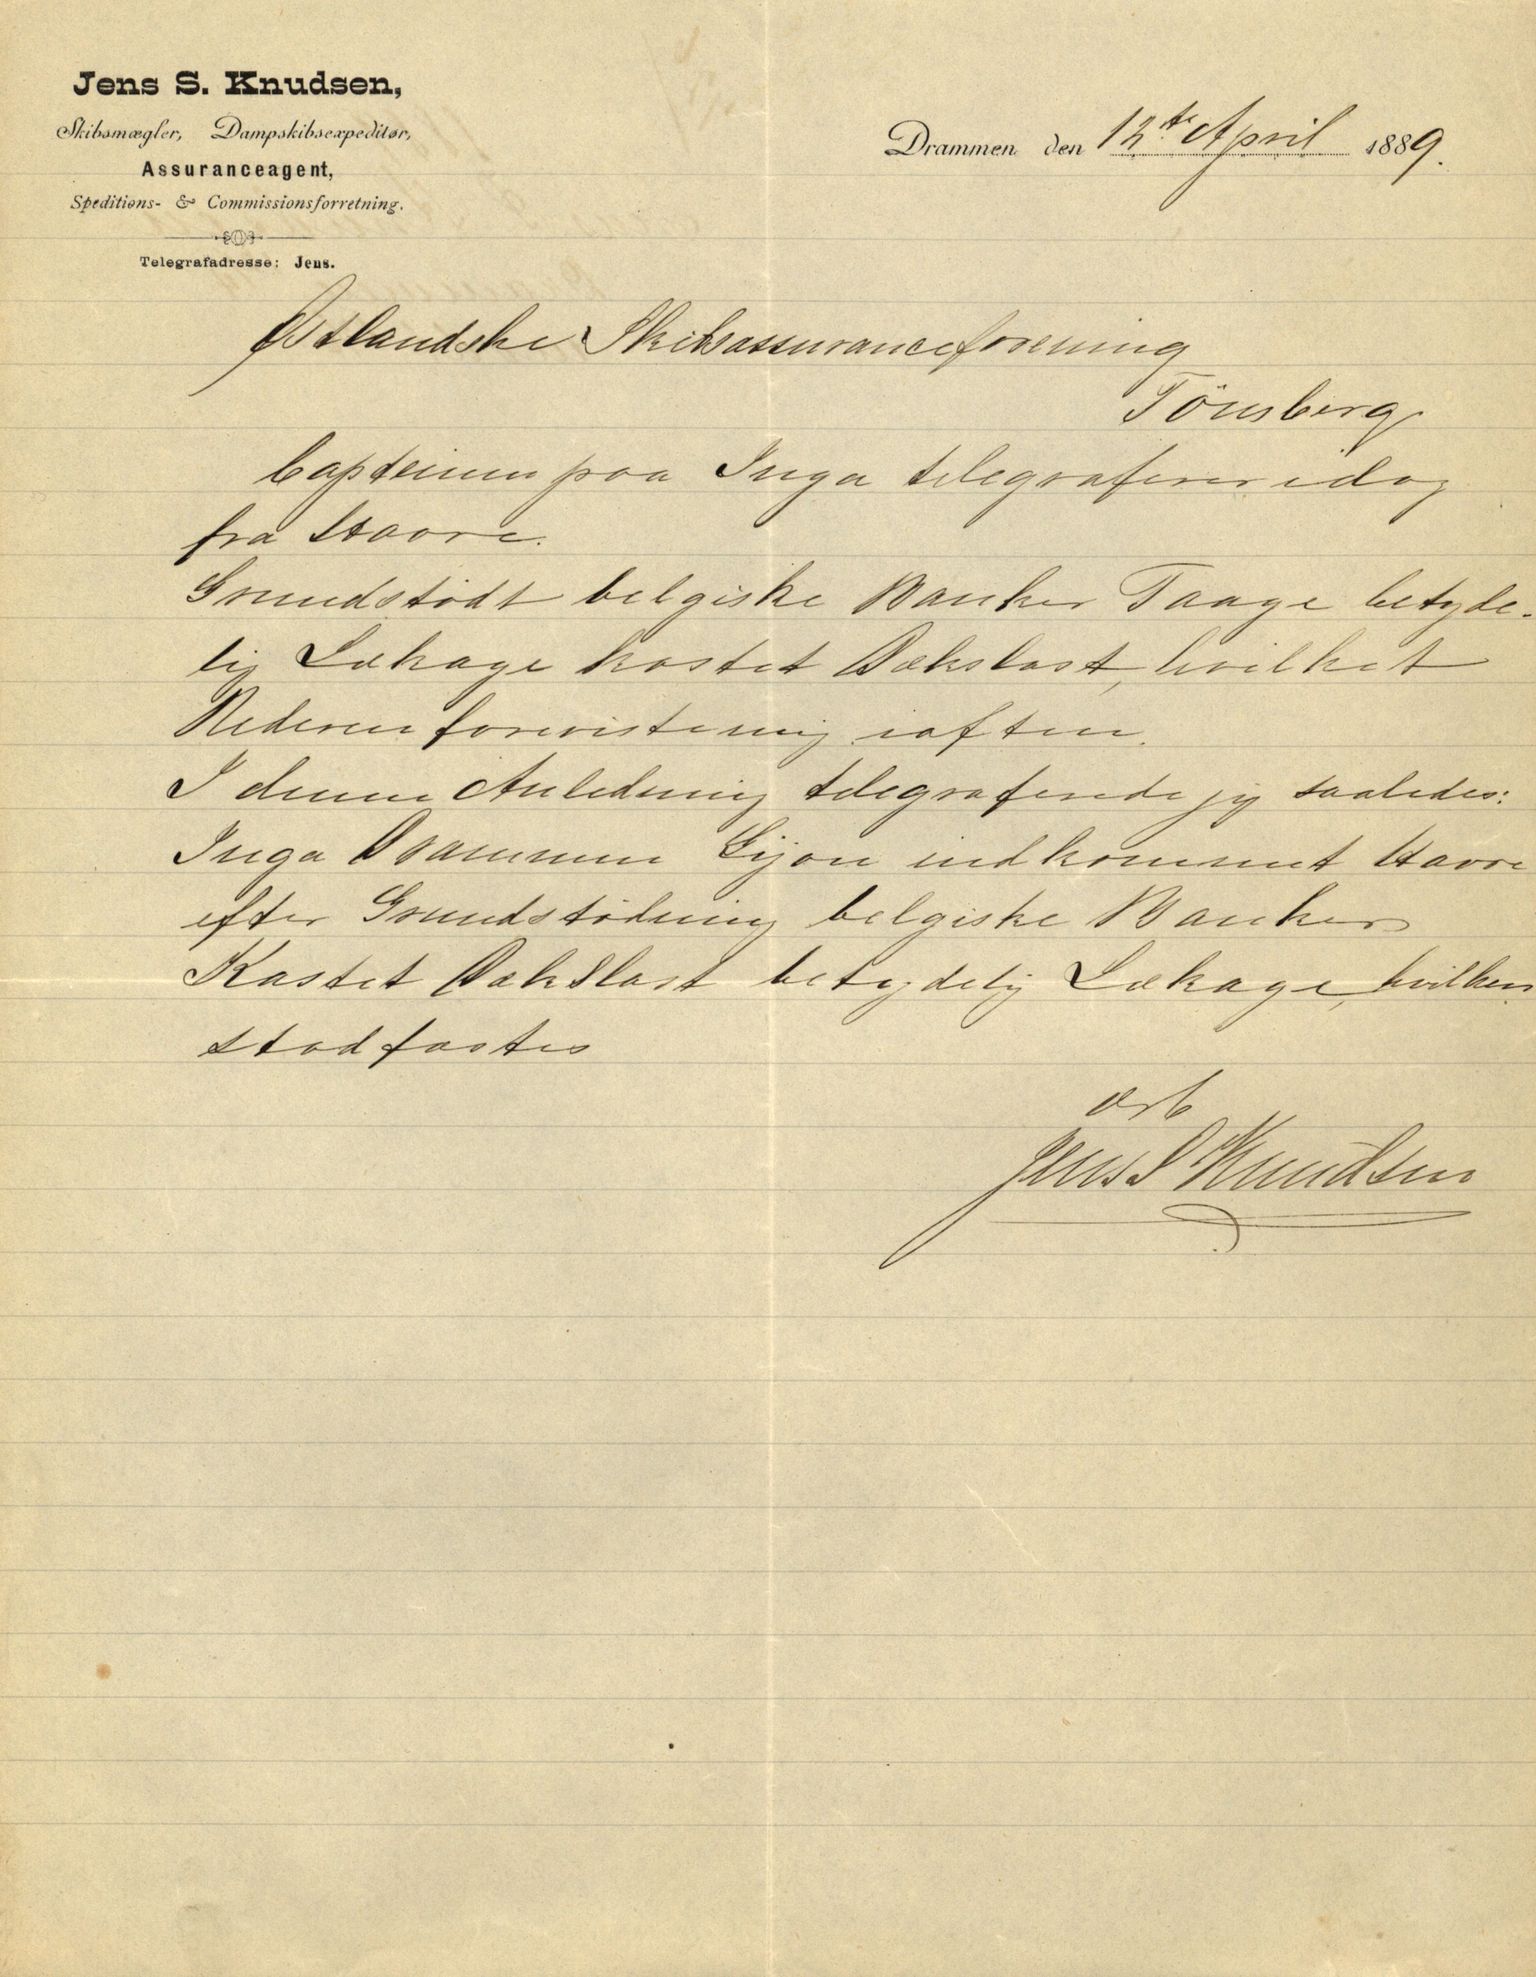 Jens S. Knudsen,
Skibsmægler, Dampskibsexpeditør,
Assuranceagent,
Speditions- & Commissionsforretning.
Telegrafadresse: Jens.
Drammen den 12te April 1889.
Østlandske Skibsassuranceforening
Tönsberg
Capteinen paa Inga telegraferer idag
fra Havre.
Grundstødt belgiske Banker Taage betyde-
lig Lækage kastet Dækslast, hvilket
Rederen foreviste mig iaften.
I denne Anledning telegraferede jeg saaledes:
Inga Drammen Gijon indkommet Havre
efter Grundstødning belgiske Banker
Kastet Dækslast betydelig Lækage, hvilken
stadfæstes
Ærb
Jens S Knudsen